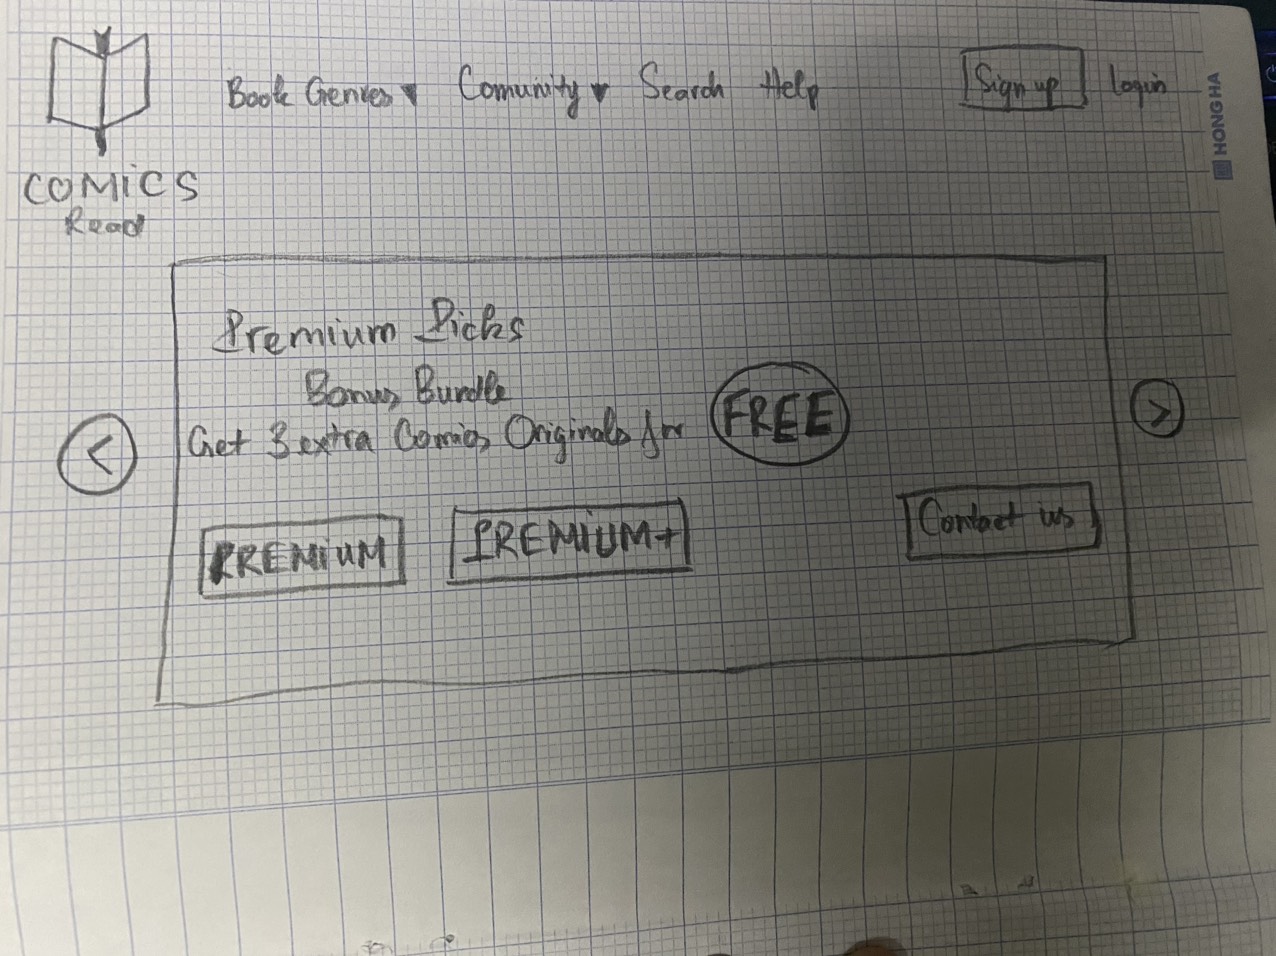 Book Genres Comunity Search Help Sign up login
COMICS
Read
HONG HA
Premium Picks
Bonus Bundle
Get 3 extra Comics Originals for FREE
< >
PREMIUM PREMIUM+ Contact us